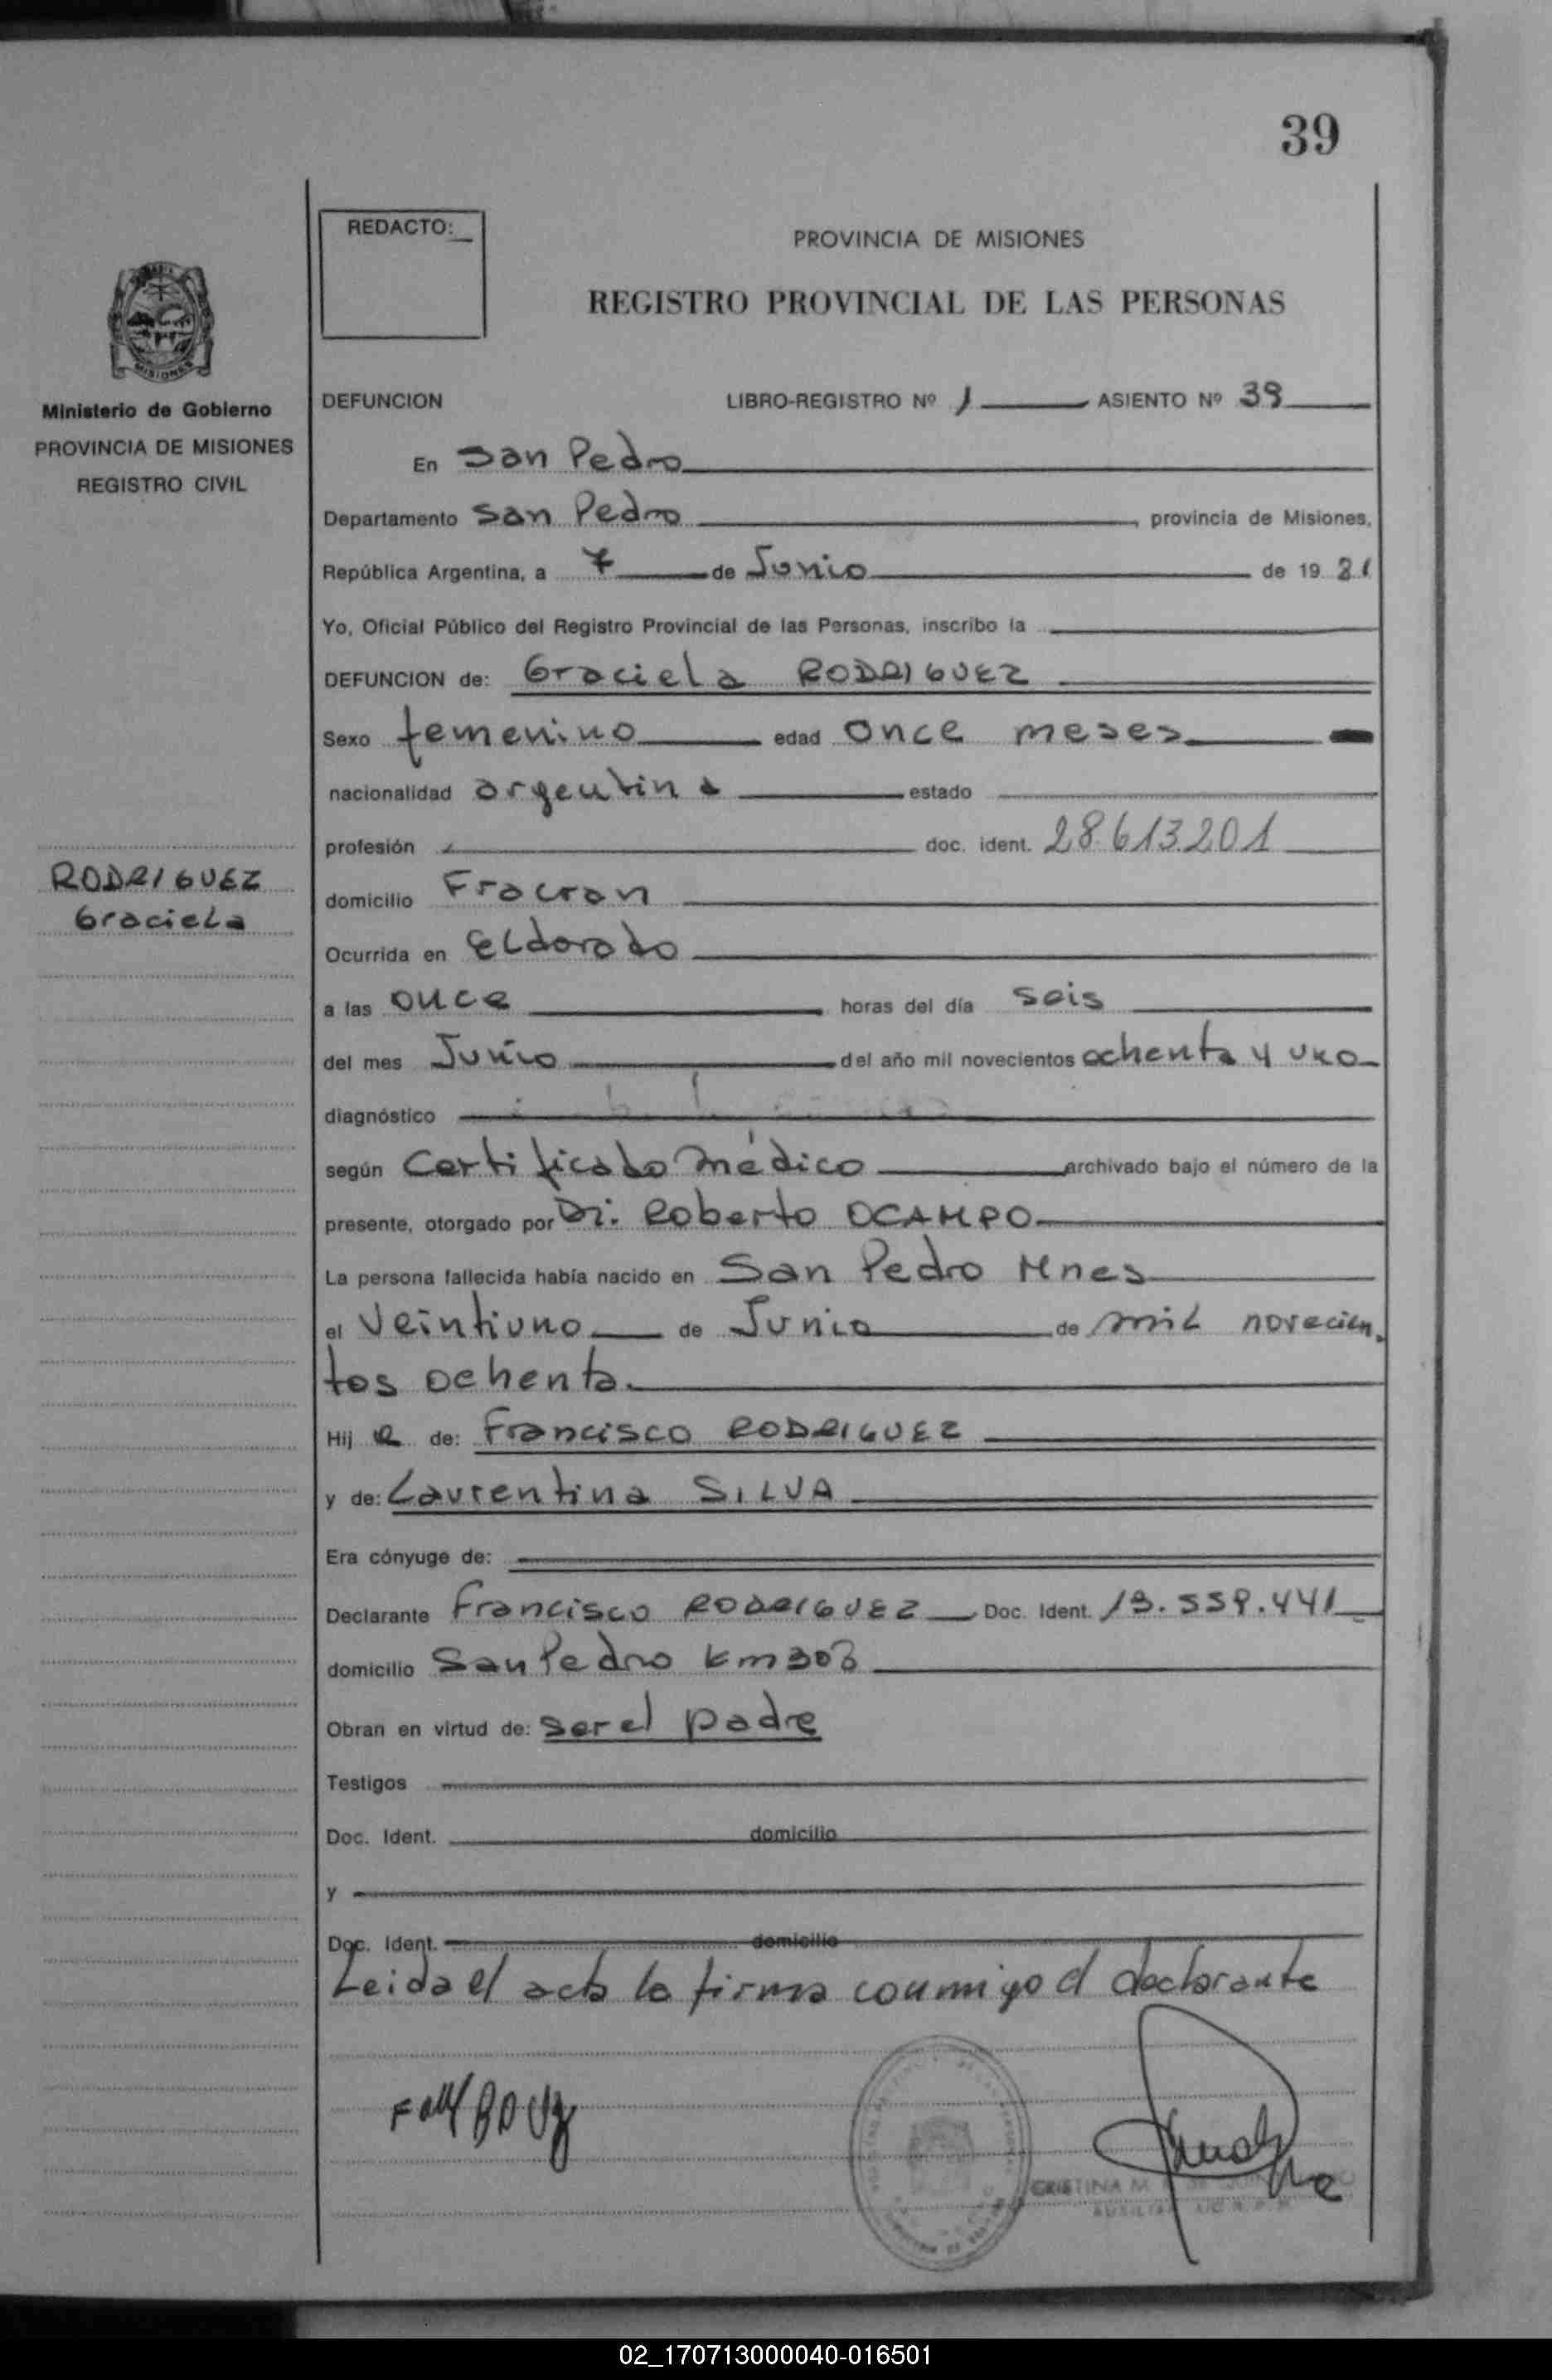 39
REDACTO:
PROVINCIA DE MISIONES
REGISTRO PROVINCIAL DE LAS PERSONAS
MISIONES
Ministerio de Gobierno
PROVINCIA DE MISIONES
REGISTRO CIVIL
DEFUNCION LIBRO-REGISTRO Nº 1 ASIENTO Nº 39
En San Pedro
Departamento San Pedro, provincia de Misiones,
República Argentina, a 7 de Junio de 19 81
Yo, Oficial Público del Registro Provincial de las Personas, inscribo la
DEFUNCION de: Graciela RODRIGUEZ
Sexo femenino edad once meses
nacionalidad argentina estado
profesión doc. ident. 28.613.201
RODRIGUEZ
Graciela
domicilio Fracran
Ocurrida en ELdorado
a las once horas del día seis
del mes Junio del año mil novecientos ochenta y uno
diagnóstico
según Certificado médico archivado bajo el número de la
presente, otorgado por Dr. Roberto OCAMPO
La persona fallecida había nacido en San Pedro Mnes
el Veintiuno de Junio de mil novecien
tos ochenta.
Hij a de: Francisco RODRIGUEZ
y de: Laurentina SILVA
Era cónyuge de:
Declarante Francisco RODRIGUEZ Doc. Ident. 13.559.441
domicilio San Pedro Km 303
Obran en virtud de: ser el padre
Testigos
Doc. Ident. domicilio
y
Doc. Ident. domicilio
Leida el acta la firma conmigo el declarante
CRISTINA M
02_170713000040-016501